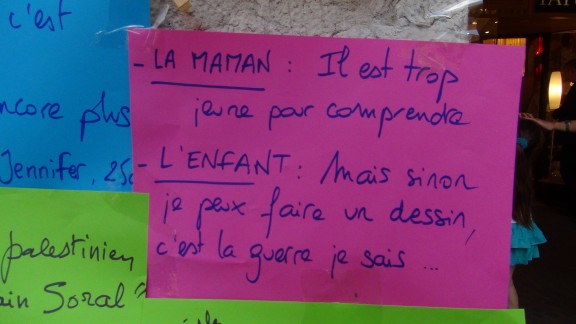 c'est
ncore plus
Jennifer, 25
- LA MAMAN : Il est trop
jeune pour comprendre
- L'ENFANT : Mais sinon
je peux faire un dessin,
c'est la guerre je sais ...
palestinien
ain Soral"